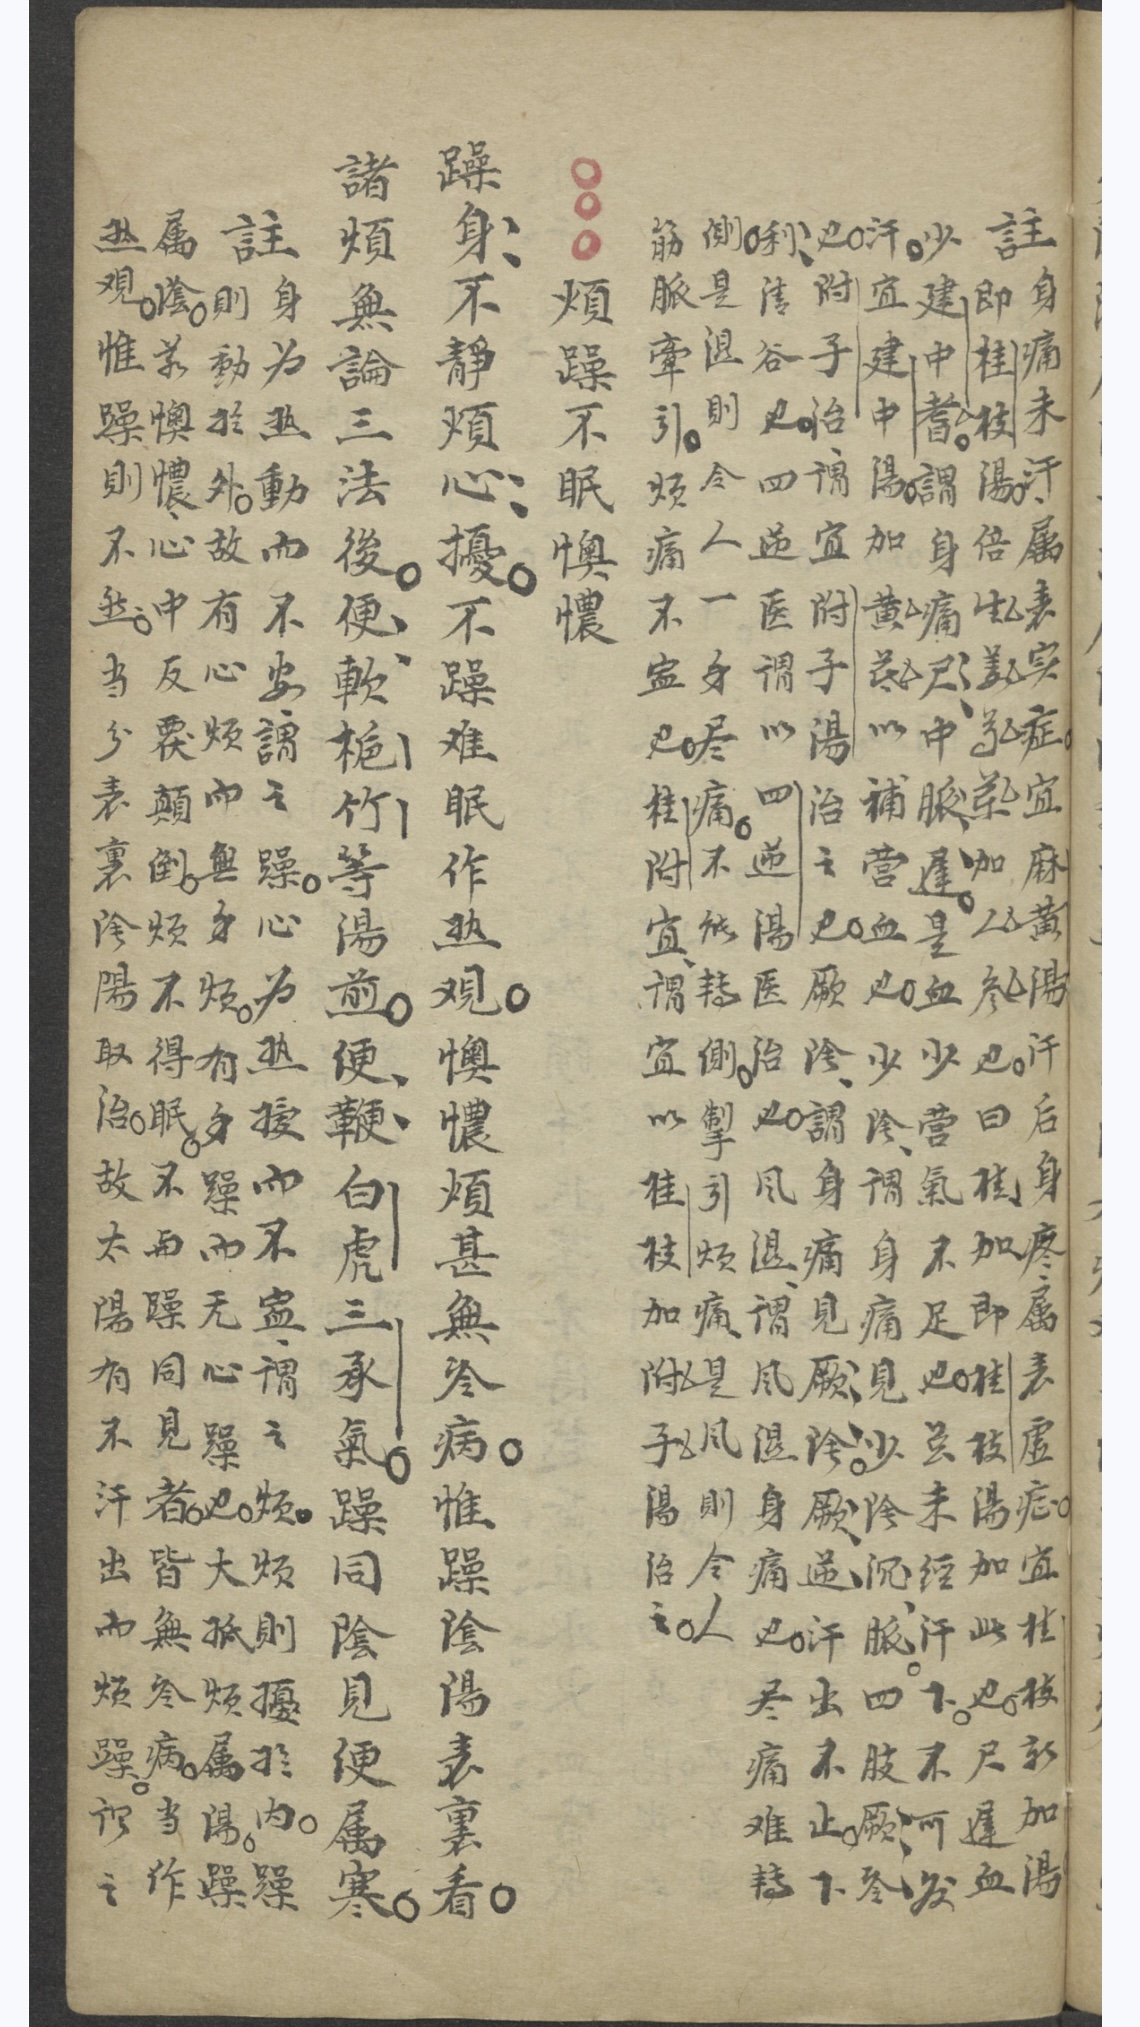 註身痛未汗属表实症宜麻黄湯汗后身疼属表虚症宜桂枝新加湯
即桂枝湯倍生姜芍薬加人参也曰桂加即桂枝湯加此也尺遲血
少建中耆謂身痛尺中脈遲是血少营氣不足也芸未經汗下不可发
汗宜建中湯加黄芪以補营血也少陰謂身痛見少陰沉脈四肢厥冷
也附子治謂宜附子湯治之也厥陰謂身痛見厥陰厥逆汗出不止下
利清谷也四逆医謂以四逆湯医治也风湿謂风湿身痛也尽痛难转
側是湿則令人一身尽痛不能转側掣引烦痛是风則令人
筋脈牽引烦痛不寍也桂附宜謂宜以桂枝加附子湯治之
煩躁不眠懊憹
躁身不靜煩心擾不躁难眠作热观懊憹煩甚無冷病惟躁陰陽表裏看
諸煩無論三法後便軟梔竹等湯前便鞭白虎三承氣躁同陰見便属寒
註身为热動而不安謂之躁心为热擾而不寍謂之烦烦則擾於内躁
則動於外故有心烦而無身烦有身躁而无心躁也大抵烦属陽躁
属陰若懊憹心中反覆顛倒烦不得眠不与躁同見者皆無冷病当作
热观惟躁則不然当分表裏陰陽取治故太陽有不汗出而烦躁